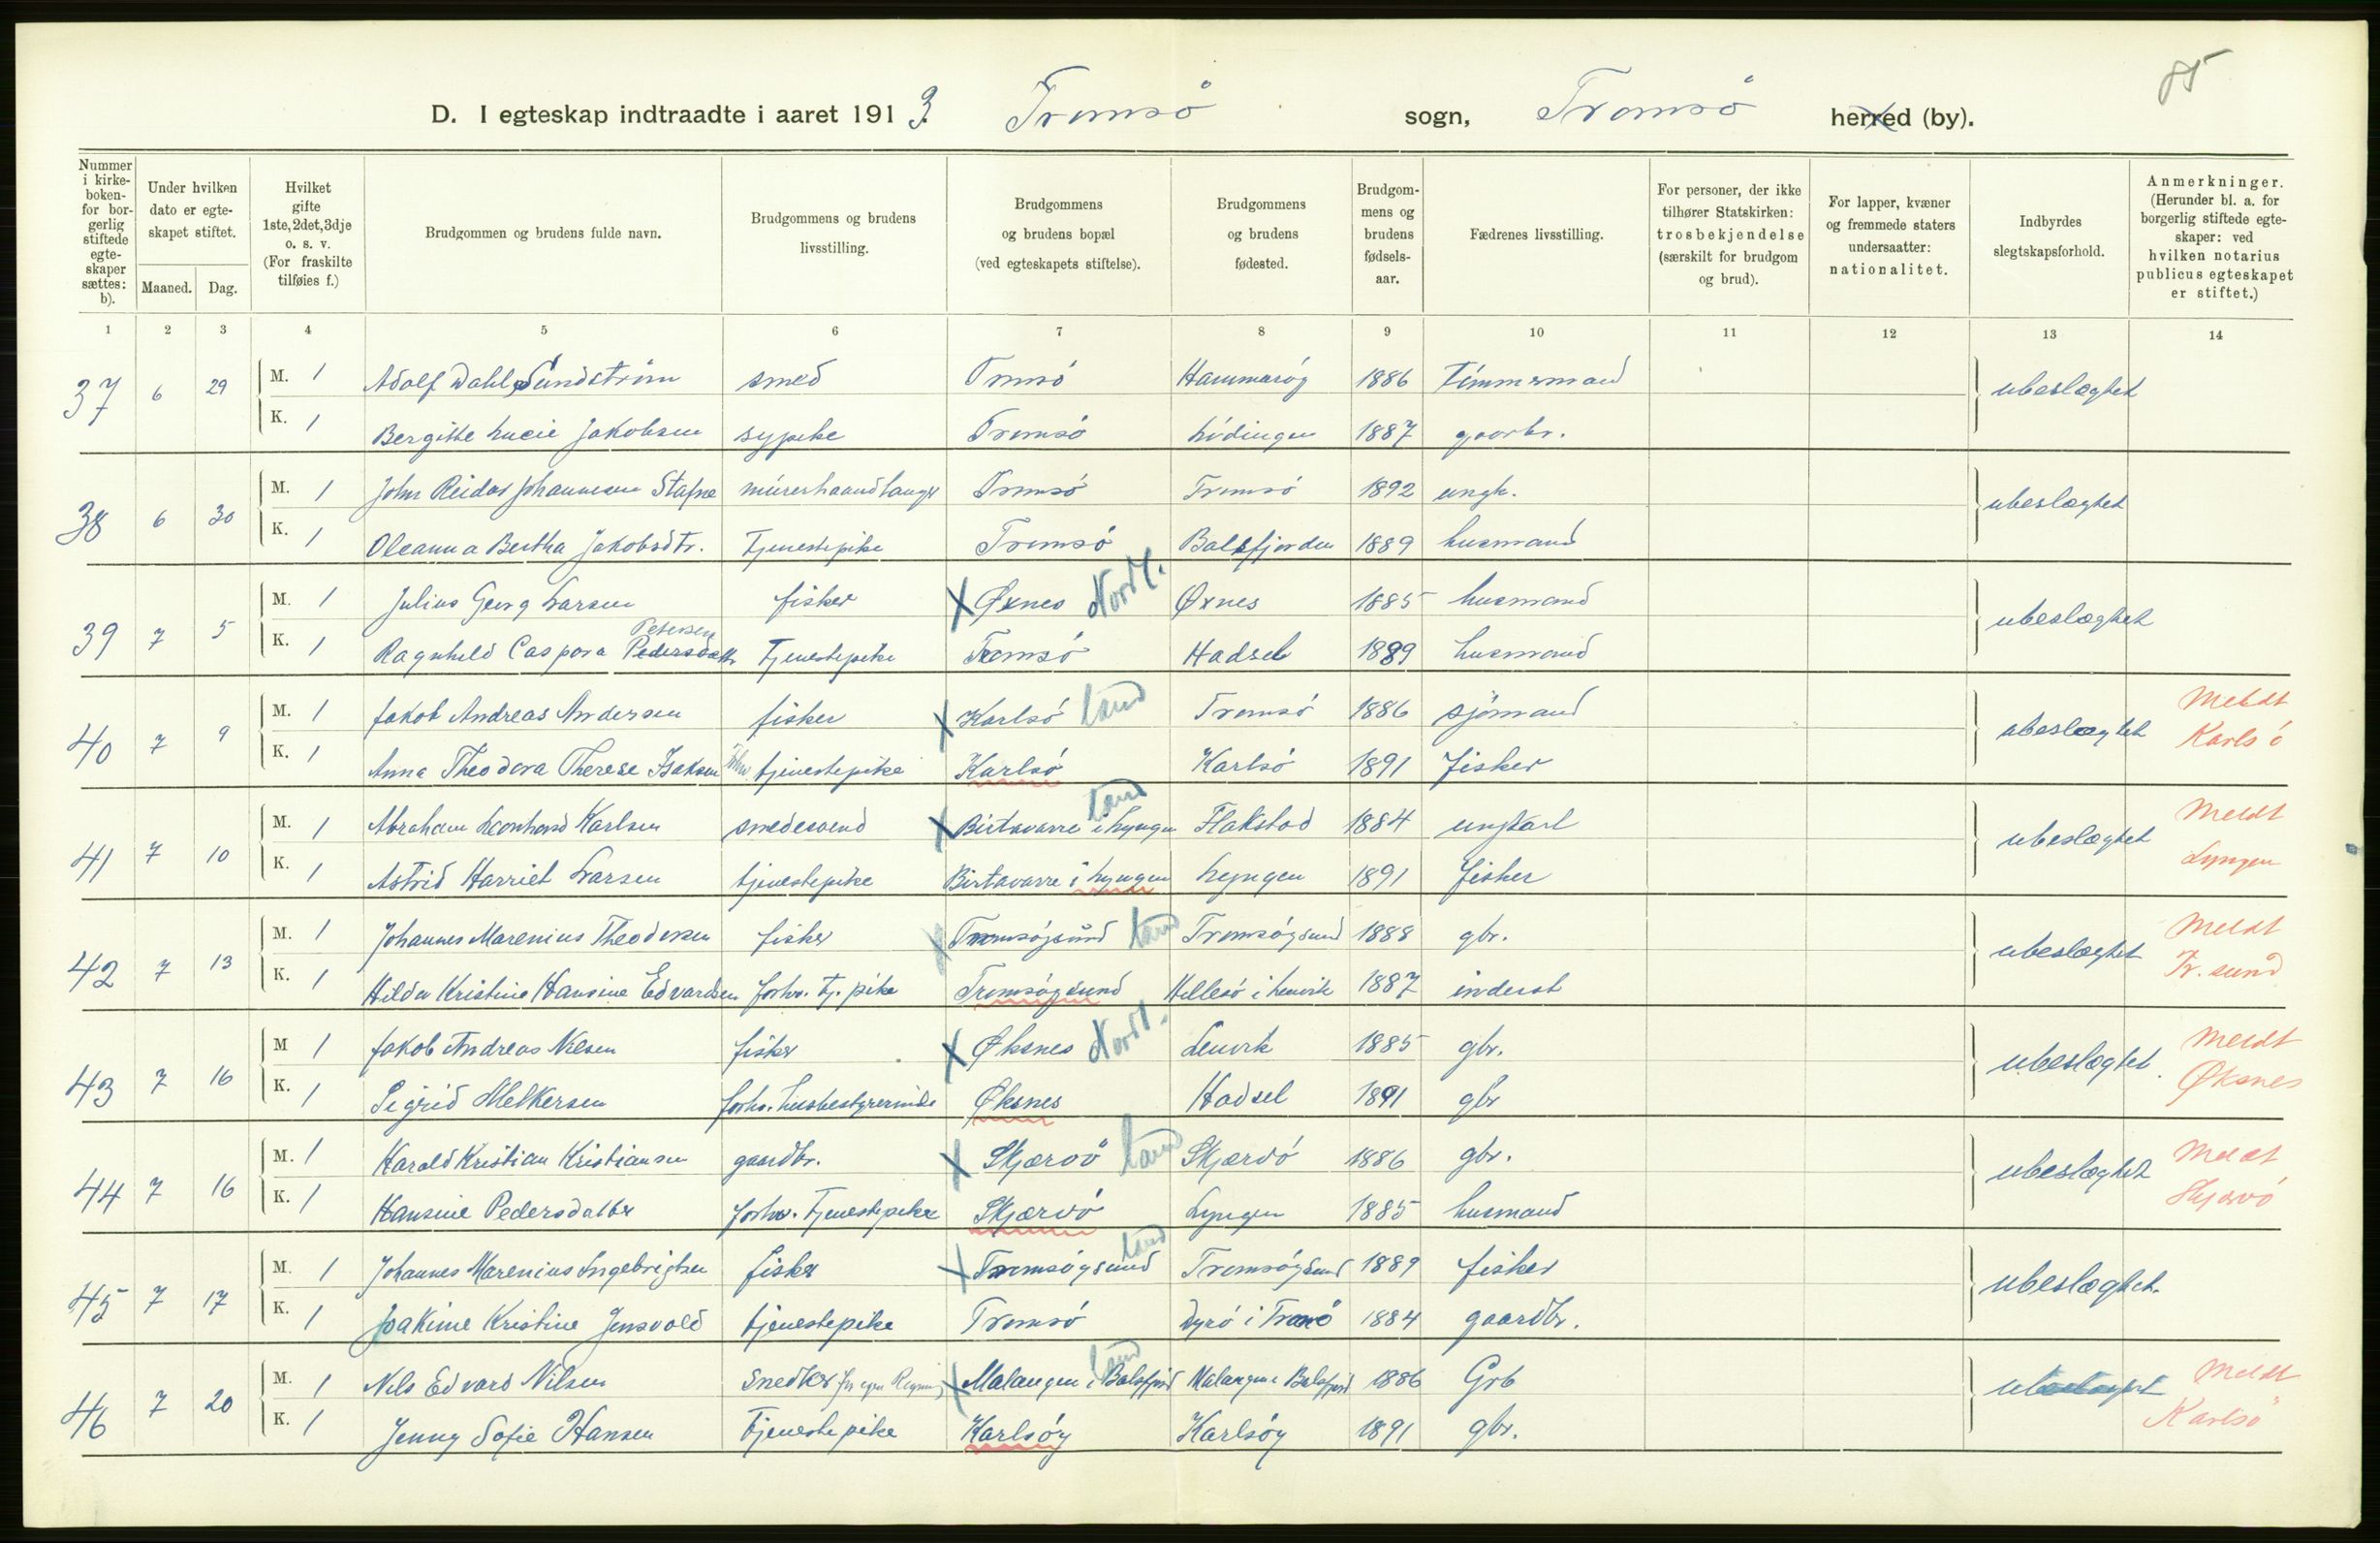 85
D. I egteskap indtraadte i aaret 1913. Tromsö sogn, Tromsö herred (by).
Nummer i kirkeboken- for borgerlig stiftede egteskaper sættes: b).
Under hvilken dato er egteskapet stiftet.
Maaned. Dag.
Hvilket gifte 1ste, 2det, 3dje o. s. v. (For fraskilte tilføies f.)
Brudgommen og brudens fulde navn.
Brudgommens og brudens livsstilling.
Brudgommens og brudens bopæl (ved egteskapets stiftelse).
Brudgommens og brudens fødested.
Brudgommens og brudens fødselsaar.
Fædrenes livsstilling.
For personer, der ikke tilhører Statskirken: trosbekjendelse (særskilt for brudgom og brud).
For lapper, kvæner og fremmede staters undersaatter: nationalitet.
Indbyrdes slegtskapsforhold.
Anmerkninger. (Herunder bl. a. for borgerlig stiftede egteskaper: ved hvilken notarius publicus egteskapet er stiftet.)
1 2 3 4 5 6 7 8 9 10 11 12 13 14
37 6 29 M. 1 Adolf Dahl Sundström smed Tromsö Hammaröy 1886 Tömmermand ubeslægtet
K. 1 Bergitte Lucie Jakobsen sypike Tromsö Lödingen 1887 gaarbr.
38 6 30 M. 1 John Reidar Johannesen Stafne mürerhaandlanger Tromsö Tromsö 1892 ungk. ubeslægtet
K. 1 Oleanna Bertha Jakobsdtr. Tjenestepike Tromsö Balsfjorden 1889 husmand
39 7 5 M. 1 Julius Georg Larsen fisker X Øxnes Nordl. Øxnes 1885 husmand ubeslægtet
Petersen
K. 1 Ragnhild Caspara Pedersdattr Tjenestepike Tromsö Hadsel 1889 husmand
40 7 9 M. 1 Jakob Andreas Andersen fisker X Karlsö land Tromsö 1886 sjömand ubeslægtet Meldt
K. 1 Anna Theodora Therese Isaksen tjenestepike Karlsö Karlsö 1891 fisker Karlsö
41 7 10 M. 1 Abraham Leonhard Karlsen smedesvend X Birtavarre i Lyngen land Flakstad 1884 ungkarl ubeslægtet Meldt
K. 1 Astrid Harriet Larsen tjenestepike Birtavarre i Lyngen Lyngen 1891 fisker Lyngen
42 7 13 M. 1 Johannes Marenius Theodorsen fisker X Tromsöysund land Tromsöysund 1888 gbr. ubeslægtet Meldt
K. 1 Hilda Kristine Hansine Edvardsen forhv. tj. pike Tromsöysund Hellesö i Lenvik 1887 inderst Tr. sund
43 7 16 M 1 Jakob Andreas Nilsen fisker X Øksnes Nordl. Lenvik 1885 gbr. ubeslægtet. Meldt
K. 1 Sigrid Melkersen forhv. husbestyrerinde Øksnes Hadsel 1891 gbr Øksnes
44 7 16 M. 1 Harald Kristian Kristiansen gaardbr. X Skjærvö land Skjærvö 1886 gbr. ubeslægtet Meldt
K. 1 Hansine Pedersdatter forhv. Tjenestepike Skjærvö Lyngen 1885 husmand Skjærvö
45 7 17 M. 1 Johannes Marenius Ingebrigtsen fisker X Tromsöysund land Tromsöysund 1889 fisker ubeslægtet.
K. 1 Joakime Kristine Jensvold tjenestepike Tromsö Dyrö i Tranö 1884 gaardbr.
46 7 20 M. 1 Nils Edvard Nilsen Snedker for egen Regning X Malangen i Balsfjord land Malangen i Balsfjord 1886 Grb ubeslægtet Meldt
K. 1 Jenny Sofie Hansen Tjenestepike Karlsöy Karlsöy 1891 gbr. Karlsö